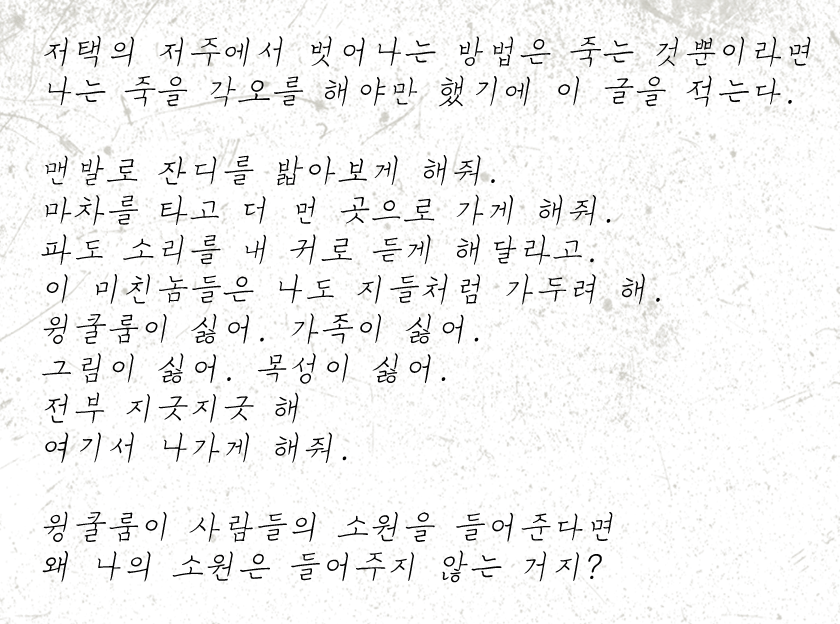 저택의 저주에서 벗어나는 방법은 죽는 것뿐이라면
나는 죽을 각오를 해야만 했기에 이 글을 적는다.
맨발로 잔디를 밟아보게 해줘.
마차를 타고 더 먼 곳으로 가게 해줘.
파도 소리를 내 귀로 듣게 해달라고.
이 미친놈들은 나도 지들처럼 가두려 해.
윙쿨룸이 싫어. 가족이 싫어.
그림이 싫어. 목성이 싫어.
전부 지긋지긋 해
여기서 나가게 해줘.
윙쿨룸이 사람들의 소원을 들어준다면
왜 나의 소원은 들어주지 않는 거지?